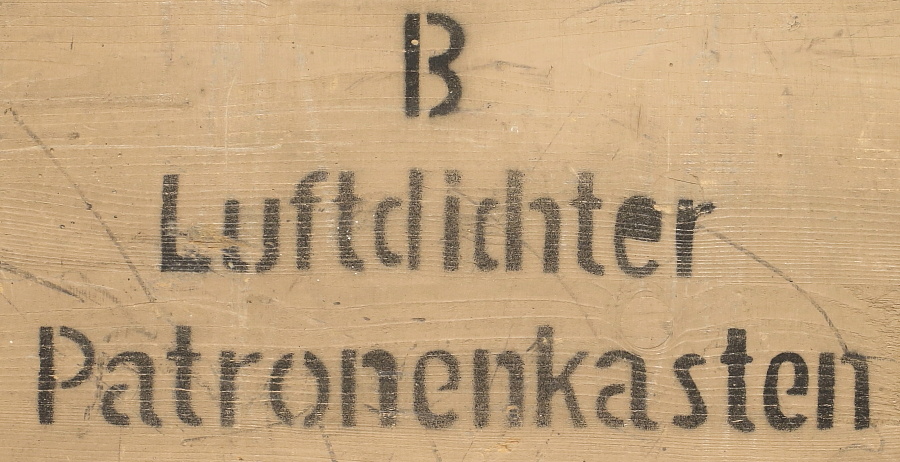 B
Luftdichter
Patronenkasten